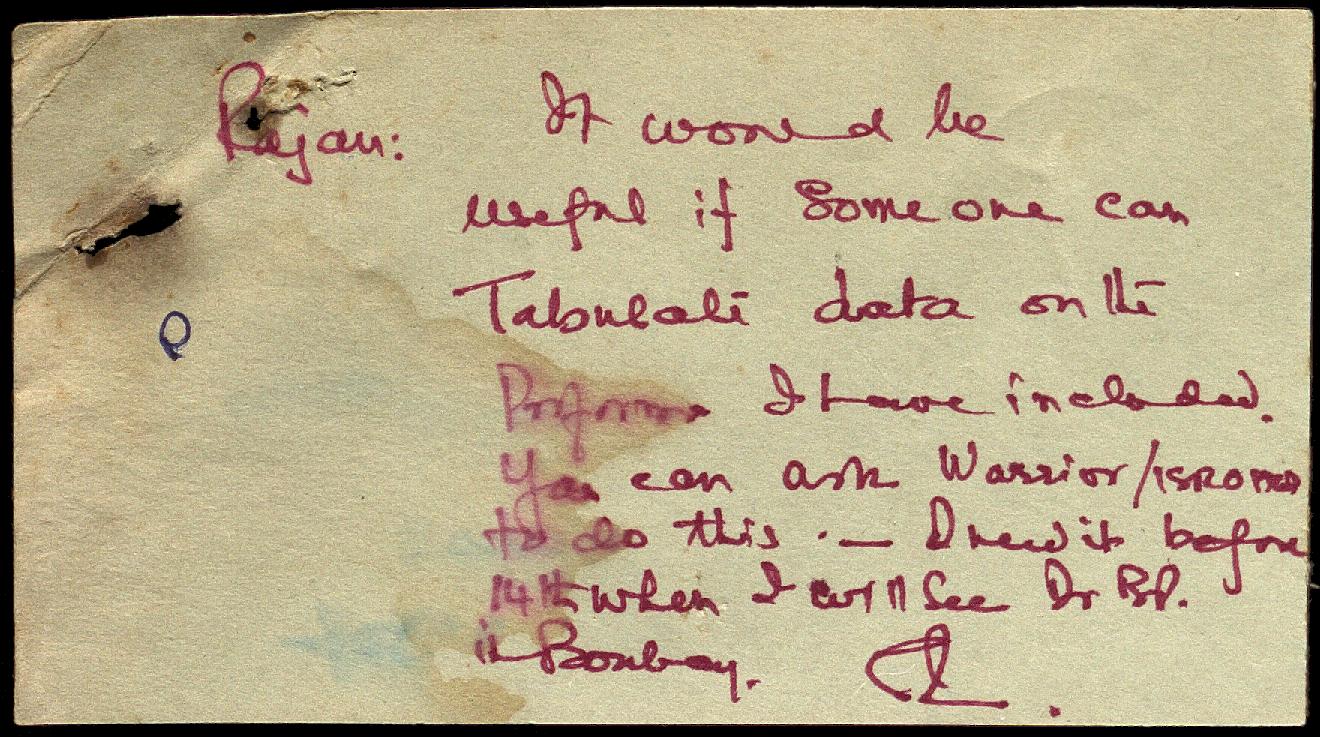 Rajan: It would be
useful if Someone can
Tabulate data on the
Proforma I have included.
You can ask Warrior/ISRO
to do this. — I need it before
14th when I will See Dr BP.
in Bombay.